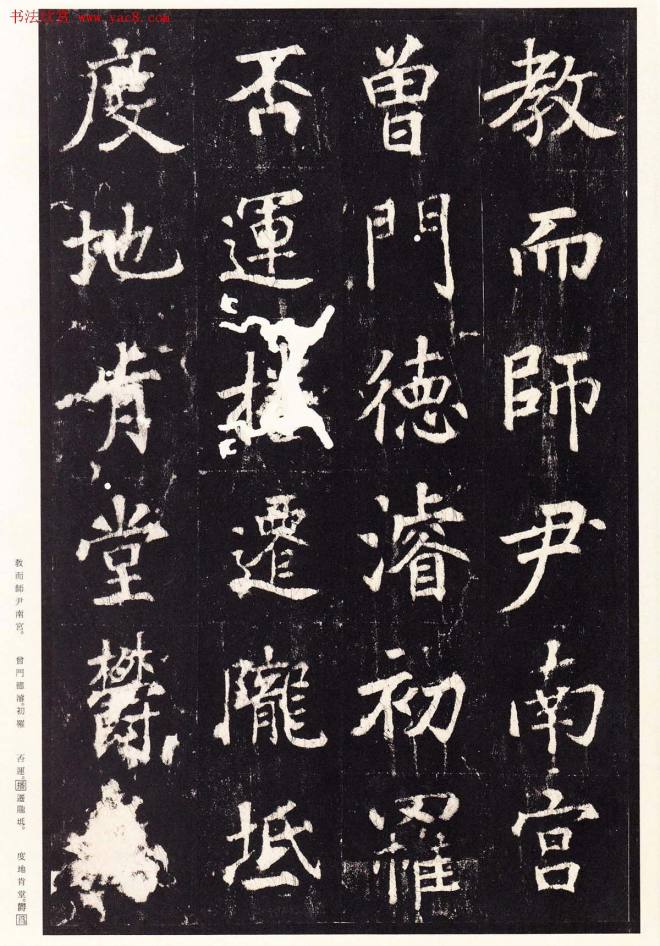 书法欣赏 www.yac8.com
教而師尹南宫
曾門德濬初羅
否運播遷隴坻
度地肯堂欝
教而師尹南宮。 曾門德濬。初羅 否運。播遷隴坻。 度地肯堂。欝